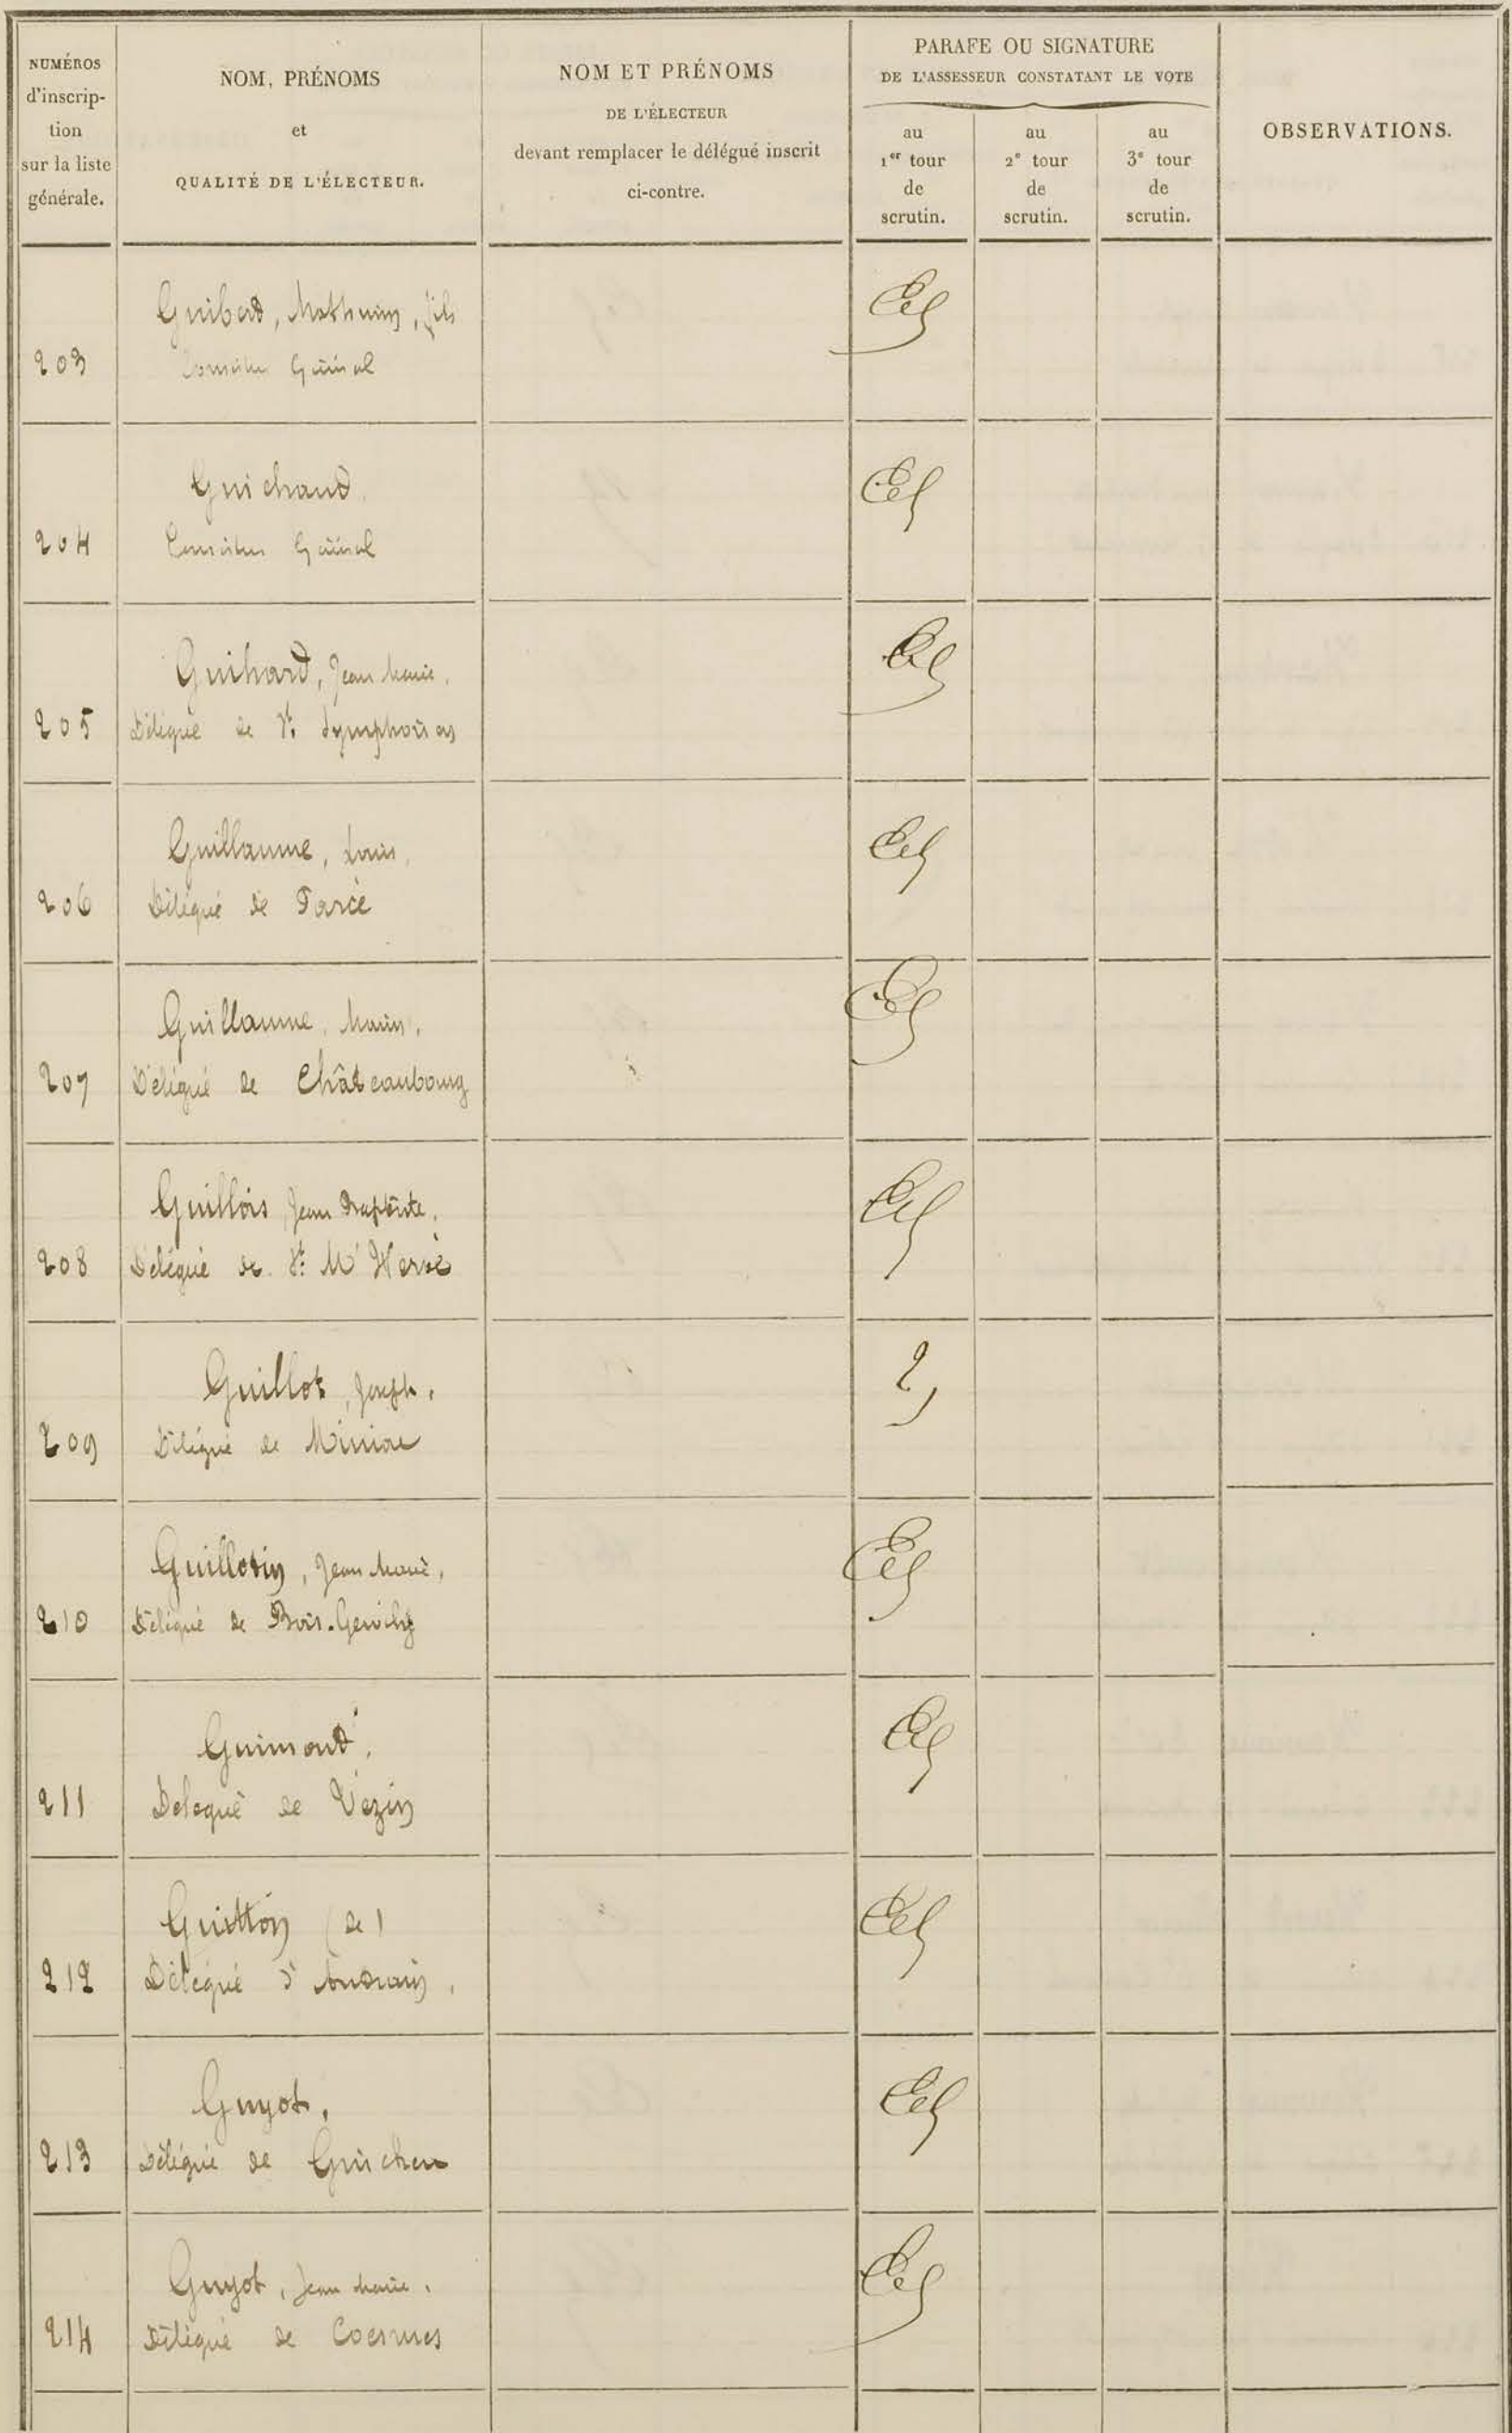 NUMÉROS
d'inscrip-
tion
sur la liste
générale.
NOM, PRÉNOMS
et
QUALITÉ DE L'ÉLECTEUR.
NOM ET PRÉNOMS
DE L'ÉLECTEUR
devant remplacer le délégué inscrit
ci-contre.
PARAFE OU SIGNATURE
DE L'ASSESSEUR CONSTATANT LE VOTE
au
1er tour
de
scrutin.
au
2e tour
de
scrutin.
au
3e tour
de
scrutin.
OBSERVATIONS.
Guibert, Mathurin, fils
203 Conseiller Général
Guichard
204 Conseiller Général
Guihard, Jean Marie,
205 Délégué de St Symphorien
Guillaume, Louis,
206 Délégué de Parcé
Guillaume, Marin,
207 Délégué de Châteaubourg
Guillois Jean Baptiste,
208 Délégué de St M' Hervé
Guillot, Joseph,
209 Délégué de Miniac
Guillotin, Jean Marie,
210 Délégué de Bois-Gervilly
Guimont,
211 Délégué de Vezin
Guitton (de)
212 Délégué d'Andrain,
Guyot,
213 Délégué de Guichen
Guyot, Jean Marie,
214 Délégué de Coesmes